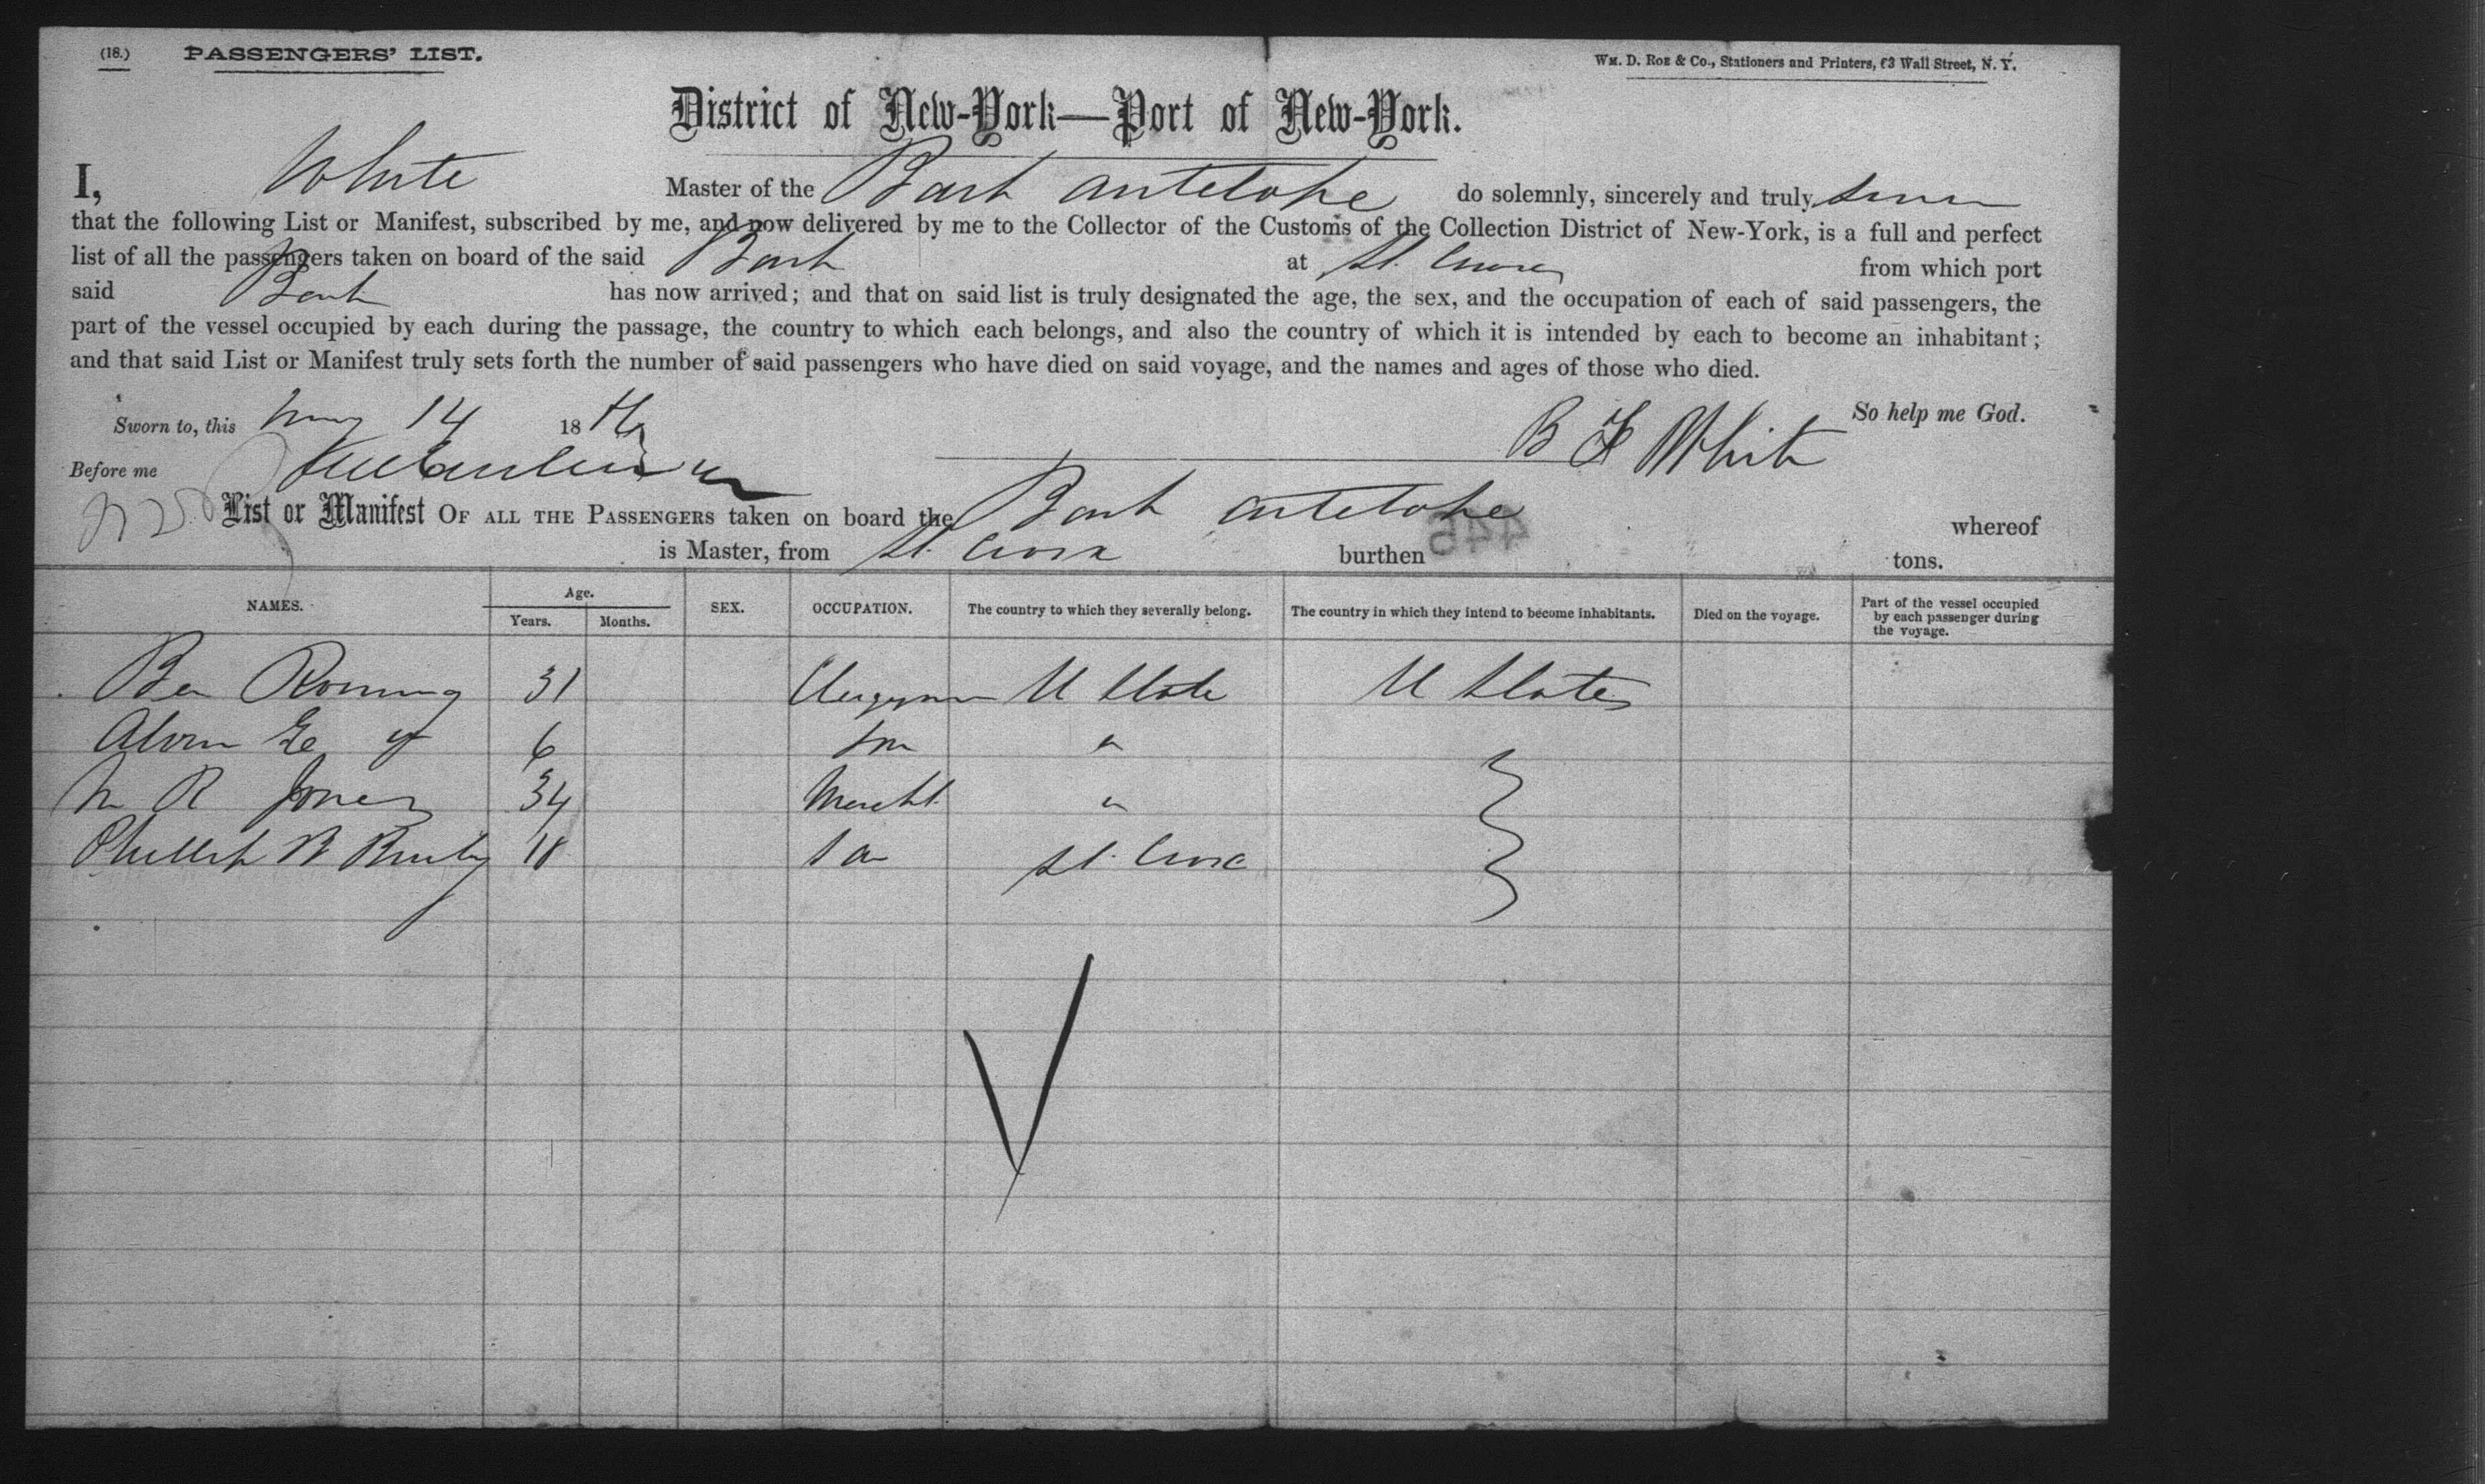 (18.) PASSENGERS' LIST. Wm. D. Roe & Co., Stationers and Printers, 63 Wall Street, N. Y.
District of New-York—Port of New-York.
I, White Master of the Bark Antelope do solemnly, sincerely and truly
that the following List or Manifest, subscribed by me, and now delivered by me to the Collector of the Customs of the Collection District of New-York, is a full and perfect
list of all the passengers taken on board of the said Bark at St. Croix from which port
said Bark has now arrived; and that on said list is truly designated the age, the sex, and the occupation of each of said passengers, the
part of the vessel occupied by each during the passage, the country to which each belongs, and also the country of which it is intended by each to become an inhabitant;
and that said List or Manifest truly sets forth the number of said passengers who have died on said voyage, and the names and ages of those who died.
So help me God.
Sworn to, this May 14 18 B F White
Before me
List or Manifest OF ALL THE PASSENGERS taken on board the Bark Antelope whereof
is Master, from St. Croix burthen tons.
446
NAMES. Age. Years. Months. SEX. OCCUPATION. The country to which they severally belong. The country in which they intend to become inhabitants. Died on the voyage. Part of the vessel occupied by each passenger during the voyage.
Ben Romig 31 Clergyman U State U States
6 Son "
R Jones 34 Mercht. "
Phillip 18 St. Croix